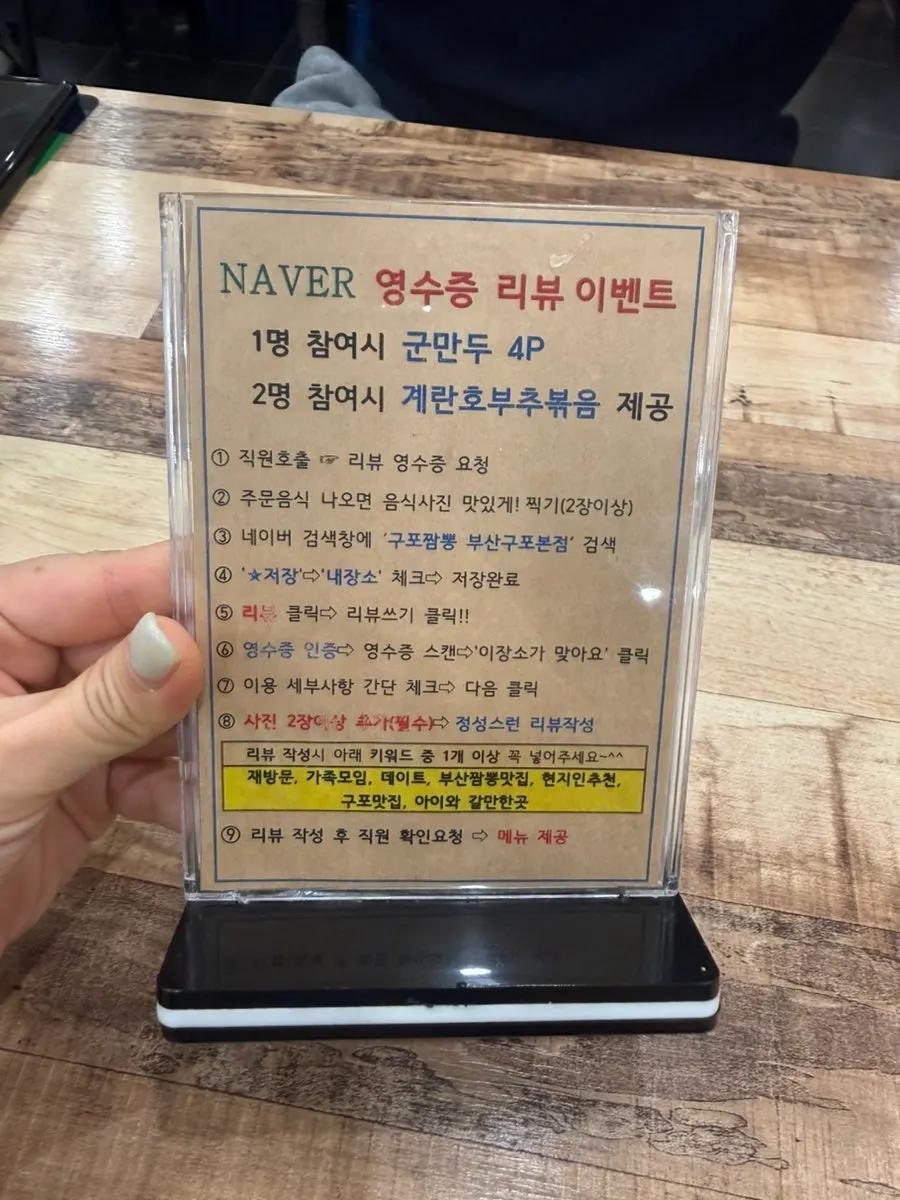 NAVER 영수증 리뷰 이벤트
1명 참여시 군만두 4P
2명 참여시 계란호부추볶음 제공
① 직원호출 ☞ 리뷰 영수증 요청
② 주문음식 나오면 음식사진 맛있게! 찍기(2장이상)
③ 네이버 검색창에 '구포짬뽕 부산구포본점' 검색
④ '★저장'⇨'내장소' 체크⇨ 저장완료
⑤ 리뷰 클릭⇨ 리뷰쓰기 클릭!!
⑥ 영수증 인증⇨ 영수증 스캔⇨'이장소가 맞아요' 클릭
⑦ 이용 세부사항 간단 체크⇨ 다음 클릭
⑧ 사진 2장이상 추가(필수)⇨ 정성스런 리뷰작성
리뷰 작성시 아래 키워드 중 1개 이상 꼭 넣어주세요~^^
재방문, 가족모임, 데이트, 부산짬뽕맛집, 현지인추천,
구포맛집, 아이와 갈만한곳
⑨ 리뷰 작성 후 직원 확인요청 ⇨ 메뉴 제공